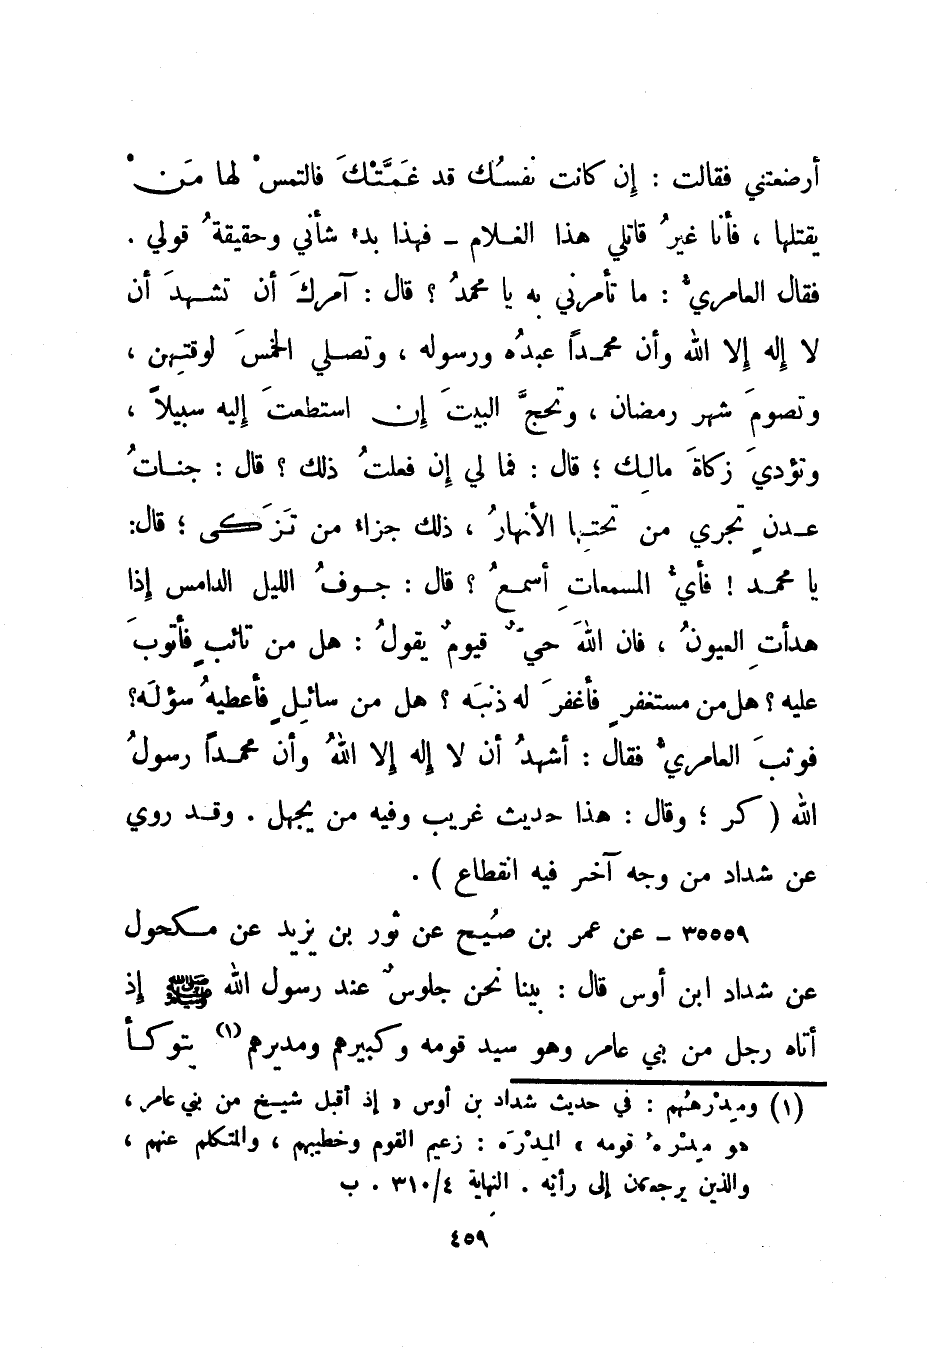 أرضعتني فقالت : إن كانت نفسُك قد غَمَّتْكَ فالتمسْ لها مَنْ
يقتلها ، فأنا غيرُ قاتلي هذا الغلام - فهذا بدء شأني وحقيقةُ قولي .
فقال العامريُّ : ما تأمرني به يا محمدُ ؟ قال : آمركَ أن تشهدَ أن
لا إله إلا الله وأن محمداً عبدُه ورسوله ، وتصلي الخمسَ لوقتهن ،
وتصومَ شهر رمضان ، وتحجَّ البيتَ إن استطعتَ إليه سبيلاً ،
وتؤديَ زكاةَ مالِك ؛ قال : فما لي إن فعلتُ ذلك ؟ قال : جناتُ
عدنٍ تجري من تحتِها الأنهارُ ، ذلك جزاء من تَزَكى ؛ قال:
يا محمد ! فأيُّ المسمعاتِ أسمعُ ؟ قال : جوفُ الليل الدامس إذا
هدأتِ العيونُ ، فان اللهَ حيٌّ قيومٌ يقولُ : هل من تائبٍ فأتوبَ
عليه ؟ هل من مستغفرٍ فأغفرَ له ذنبَه ؟ هل من سائلٍ فأعطيهُ سؤلَه؟
فوثبَ العامريُّ فقال : أشهدُ أن لا إله إلا اللهُ وأن محمداً رسولُ
الله ( كر ؛ وقال : هذا حديث غريب وفيه من يجهل . وقد روي
عن شداد من وجه آخر فيه انقطاع ) .
٣٥٥٥٩ - عن عمر بن صُبيح عن ثور بن يزيد عن مكحول
عن شداد ابن أوس قال : بينا نحن جلوسٌ عند رسول الله ﷺ إذ
أتاه رجل من بني عامر وهو سيد قومه وكبيرهم ومدرهم (١) يتوكأ
(١) ومِدْرَهُهم : في حديث شداد بن أوس « إذ أقبل شيخ من بني عامر ،
هو مِدْرَهُ قومه » المِدْرَه : زعيم القوم وخطيبهم ، والمتكلم عنهم ،
والذين يرجعون إلى رأيه . النهاية ٣١٠/٤ . ب
٤٥٩